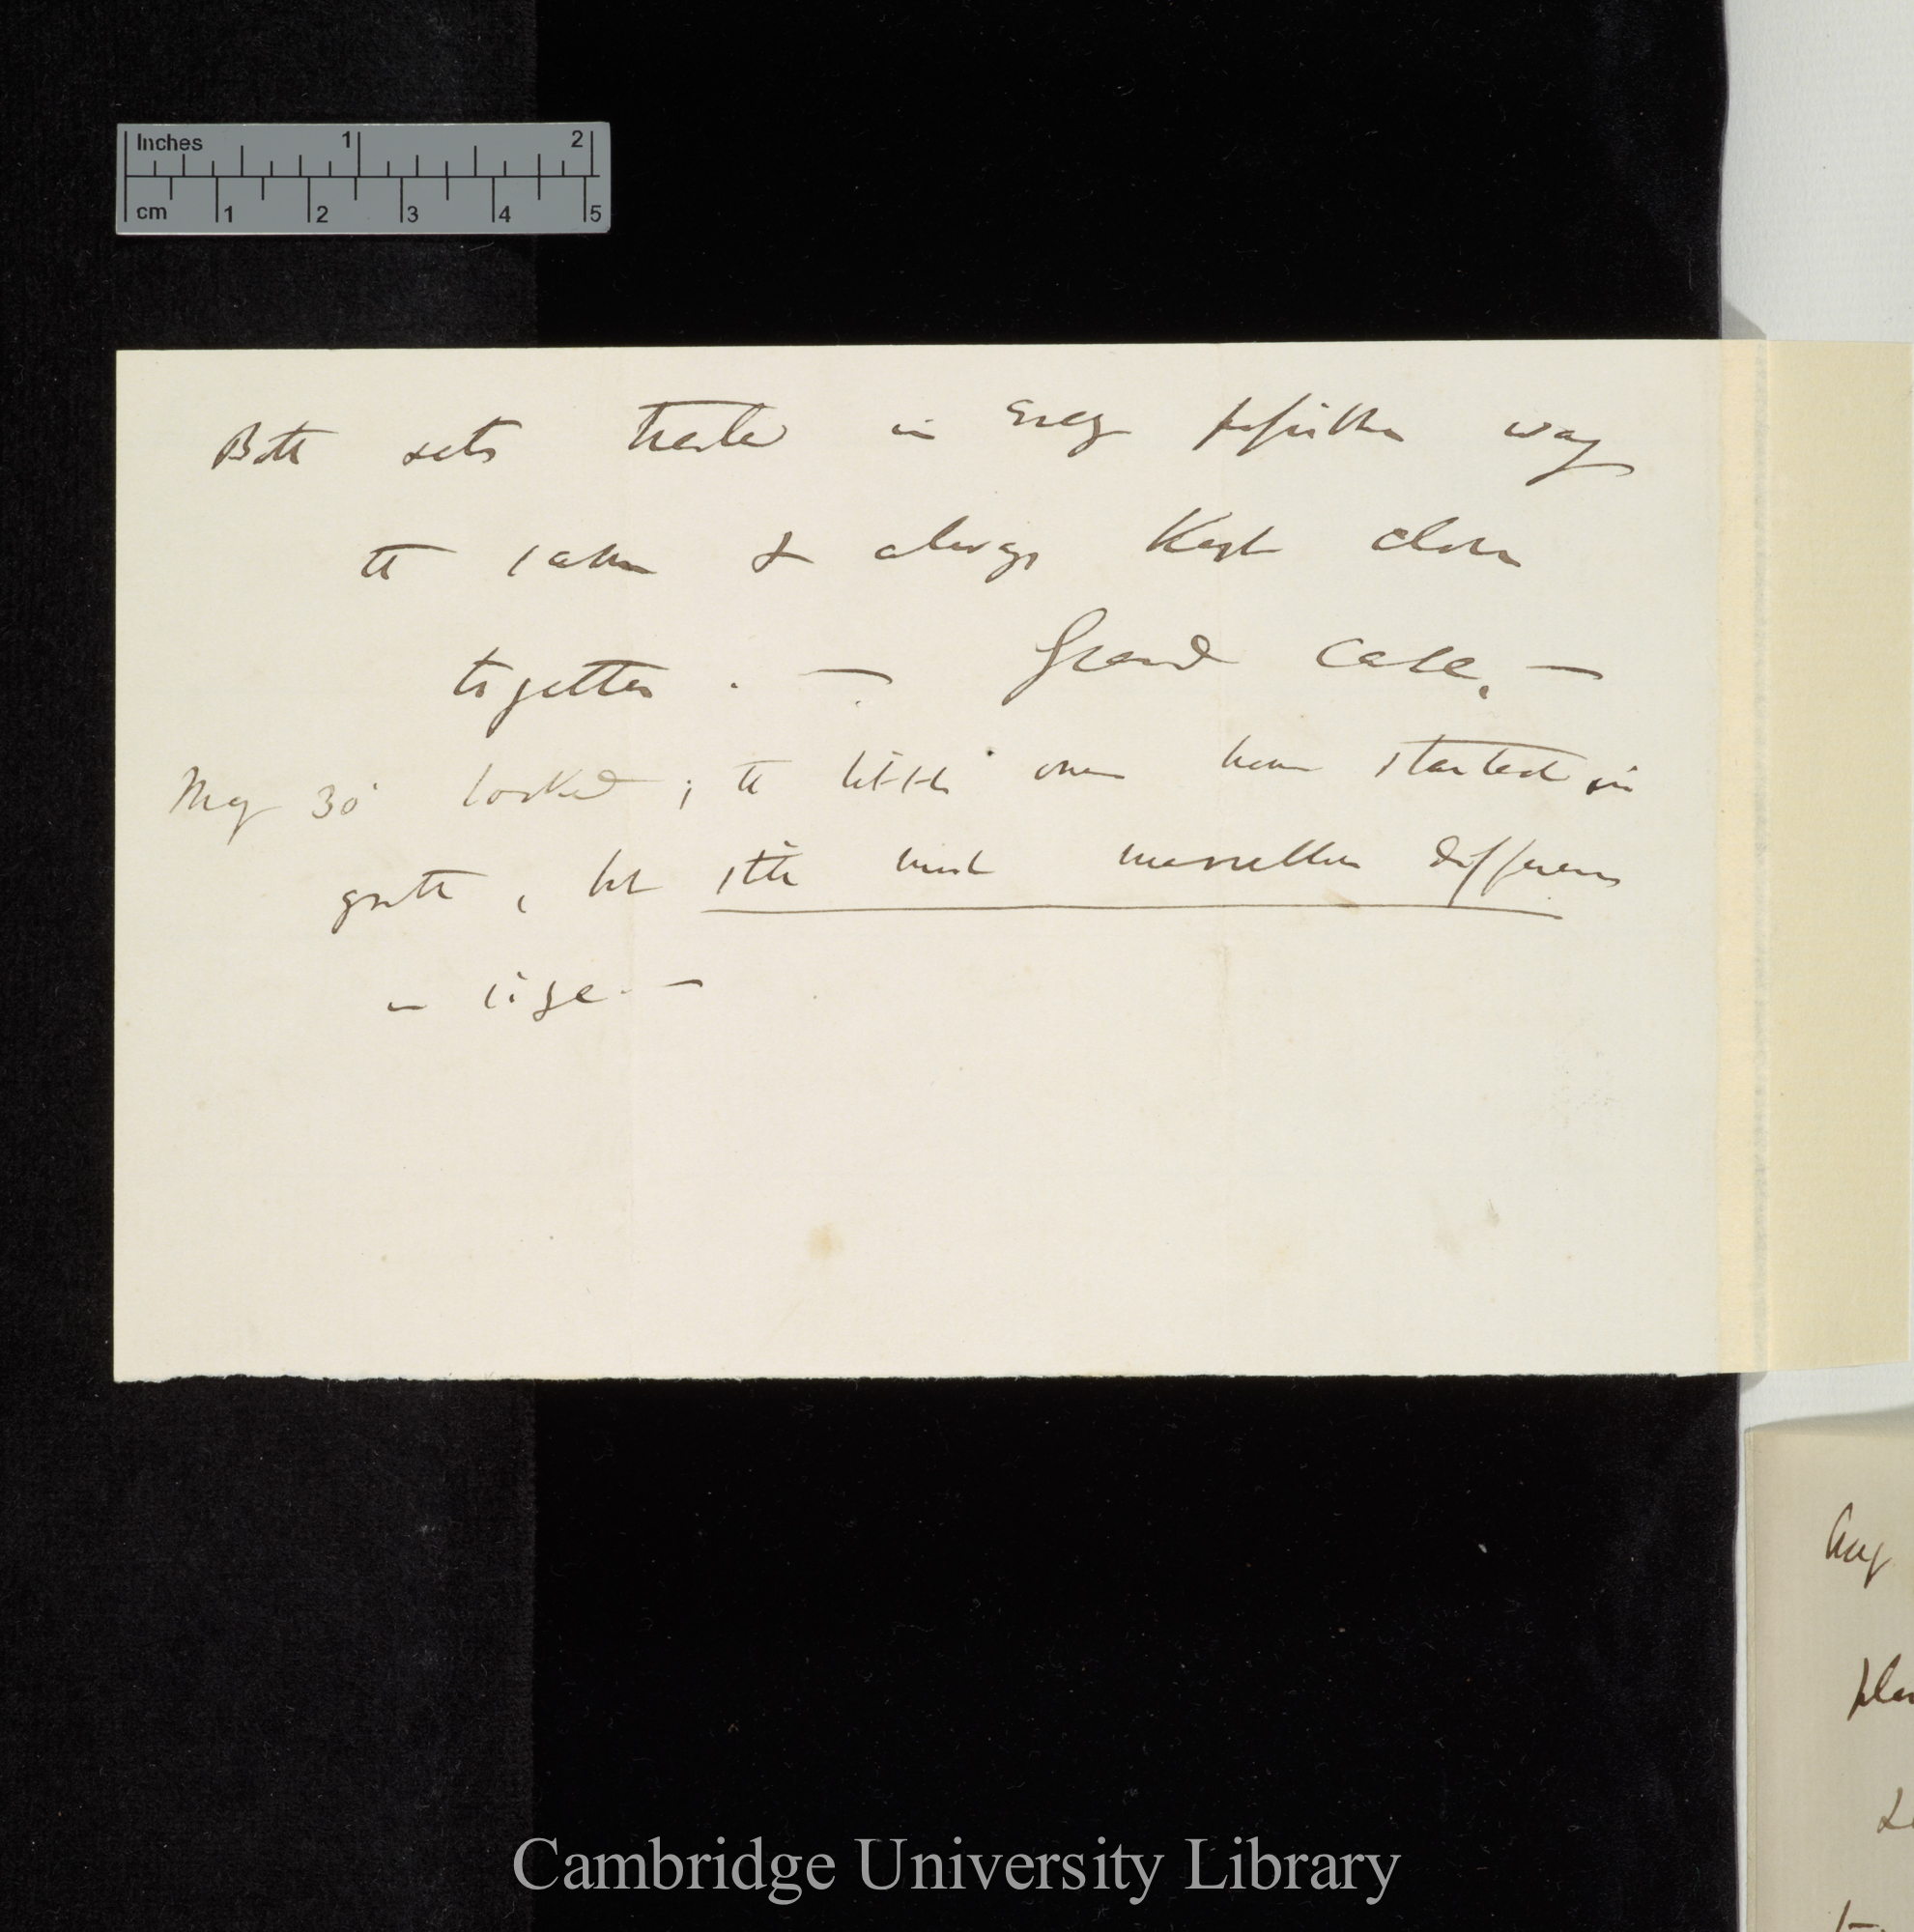 Inches 1 2
cm 1 2 3 4 5
Both sets treated in every possible way
the same & always kept close
together. — Grand Case. —
May 30th looked; the little ones have started in
growth, but still most marvellous difference
in size. —
Aug
Cambridge University Library